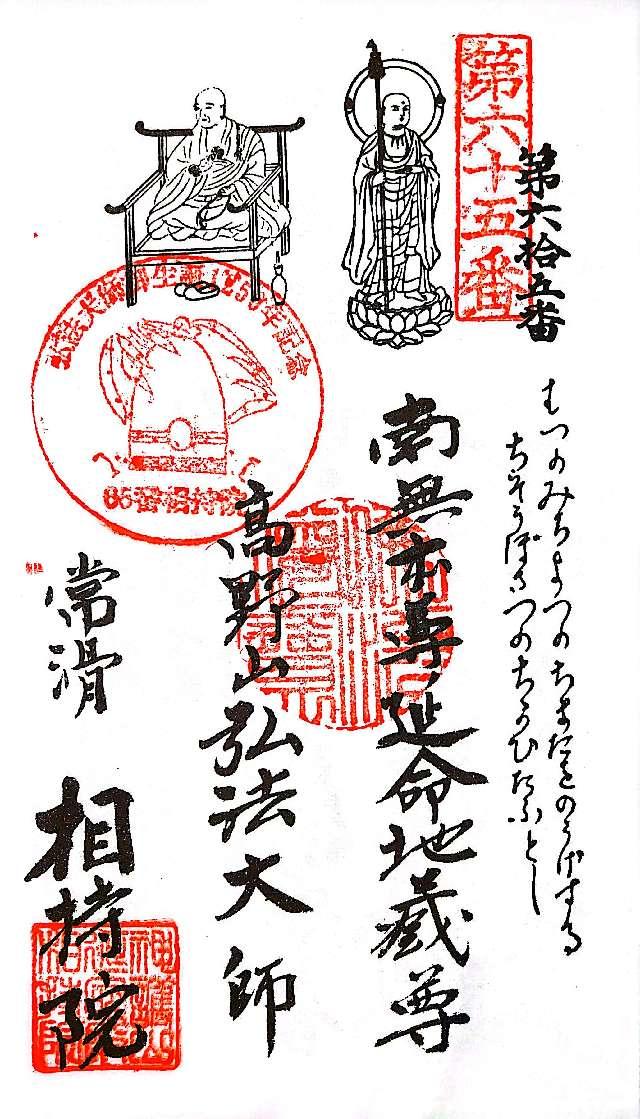 第六十五番
第六拾五番
むつのみちよつのちまたをのうげする
ちそうぼさつのちかひたふとし
南無本尊延命地蔵尊
高野山弘法大師
弘法大師御生誕1250年記念
65番相持院
常滑
相持院